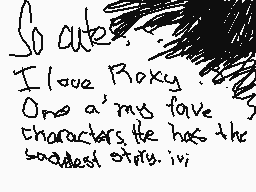 So cute..
I love Roxy.
One a' my fave
characters, He has the
saddest story. ;v;